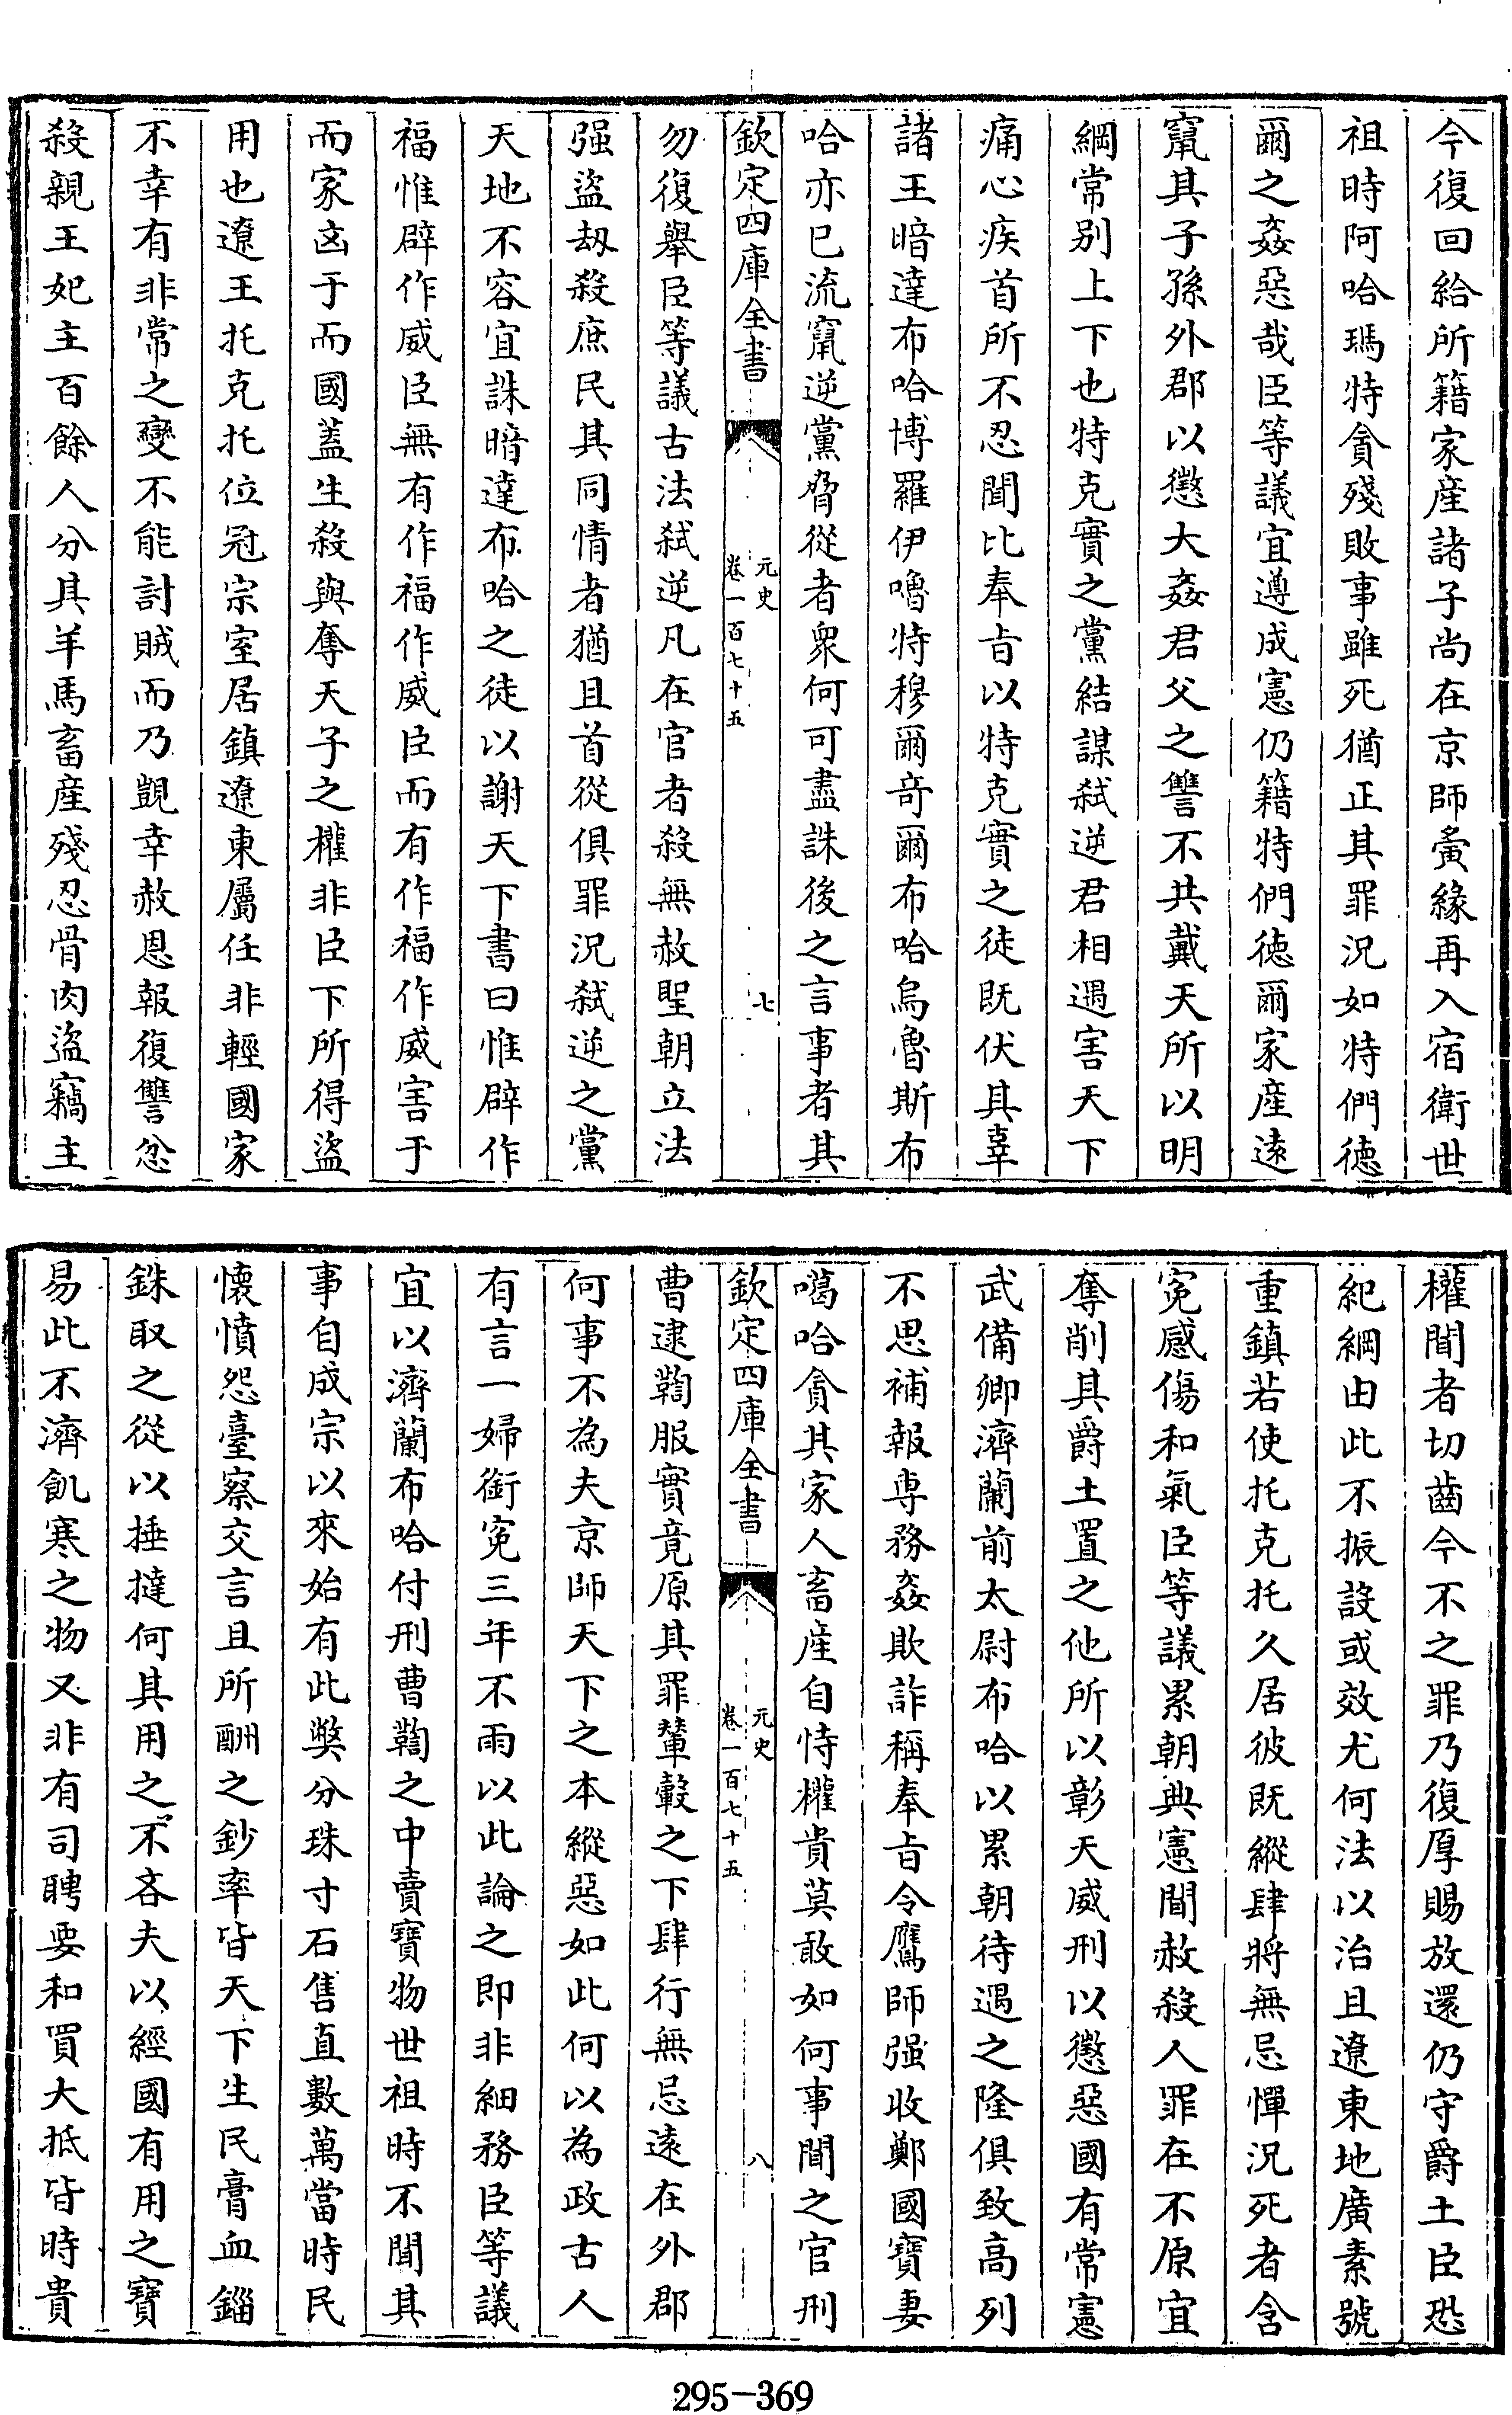 今復回給所籍家産諸子尚在京師夤緣再入宿衛世
祖時阿哈瑪特貪殘敗事雖死猶正其罪況如特們德
爾之姦惡哉臣等議宜遵成憲仍籍特們德爾家産遠
竄其子孫外郡以懲大姦君父之讐不共戴天所以明
綱常别上下也特克實之黨結謀弑逆君相遇害天下
痛心疾首所不忍聞比奉旨以特克實之徒既伏其辜
諸王暗達布哈博羅伊嚕特穆爾竒爾布哈烏魯斯布
哈亦已流竄逆黨脅從者衆何可盡誅後之言事者其
欽定四庫全書
元史
卷一百七十五
七
勿復舉臣等議古法弑逆凡在官者殺無赦聖朝立法
强盜刼殺庶民其同情者猶且首從俱罪況弑逆之黨
天地不容宜誅暗達布哈之徒以謝天下書曰惟辟作
福惟辟作威臣無有作福作威臣而有作福作威害于
而家凶于而國蓋生殺與奪天子之權非臣下所得盜
用也遼王托克托位冠宗室居鎮遼東屬任非輕國家
不幸有非常之變不能討賊而乃覬幸赦恩報復讐忿
殺親王妃主百餘人分其羊馬畜産殘忍骨肉盜竊主
權聞者切齒今不之罪乃復厚賜放還仍守爵土臣恐
紀綱由此不振設或效尤何法以治且遼東地廣素號
重鎮若使托克托久居彼既縱肆將無忌憚況死者含
寃感傷和氣臣等議累朝典憲聞赦殺人罪在不原宜
奪削其爵土置之他所以彰天威刑以懲惡國有常憲
武備卿濟蘭前太尉布哈以累朝待遇之隆俱致高列
不思補報専務姦欺詐稱奉旨令鷹師强收鄭國寶妻
噶哈貪其家人畜産自恃權貴莫敢如何事聞之官刑
欽定四庫全書
元史
卷一百七十五
八
曹逮鞫服實竟原其罪輦轂之下肆行無忌遠在外郡
何事不為夫京師天下之本縱惡如此何以為政古人
有言一婦銜寃三年不雨以此論之即非細務臣等議
宜以濟蘭布哈付刑曹鞫之中賣寶物世祖時不聞其
事自成宗以來始有此獘分珠寸石售直數萬當時民
懐憤怨臺察交言且所酬之鈔率皆天下生民膏血錙
銖取之從以捶撻何其用之不吝夫以經國有用之寶
易此不濟飢寒之物又非有司聘要和買大抵皆時貴
295-369